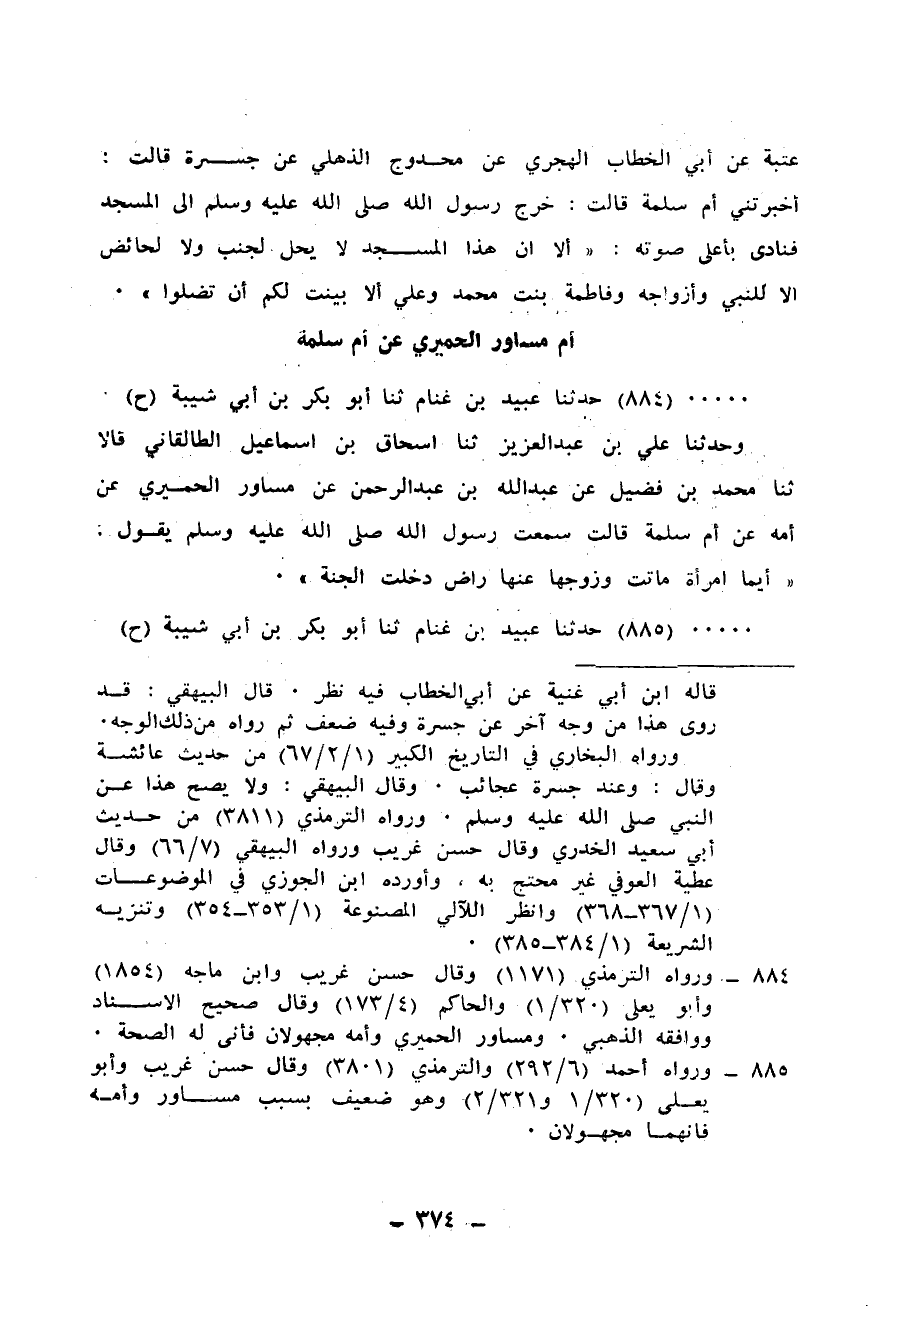 عتبة عن أبي الخطاب الهجري عن محدوج الذهلي عن جسرة قالت :
أخبرتني أم سلمة قالت : خرج رسول الله صلى الله عليه وسلم الى المسجد
فنادى بأعلى صوته : « ألا ان هذا المسجد لا يحل لجنب ولا لحائض
الا للنبي وأزواجه وفاطمة بنت محمد وعلي ألا بينت لكم أن تضلوا » ٠
أم مساور الحميري عن أم سلمة
٠٠٠٠٠ (٨٨٤) حدثنا عبيد بن غنام ثنا أبو بكر بن أبي شيبة (ح)
وحدثنا علي بن عبدالعزيز ثنا اسحاق بن اسماعيل الطالقاني قالا
ثنا محمد بن فضيل عن عبدالله بن عبدالرحمن عن مساور الحميري عن
أمه عن أم سلمة قالت سمعت رسول الله صلى الله عليه وسلم يقول :
« أيما امرأة ماتت وزوجها عنها راض دخلت الجنة » ٠
٠٠٠٠٠ (٨٨٥) حدثنا عبيد بن غنام ثنا أبو بكر بن أبي شيبة (ح)
قاله ابن أبي غنية عن أبي الخطاب فيه نظر ٠ قال البيهقي : قد
روى هذا من وجه آخر عن جسرة وفيه ضعف ثم رواه من ذلك الوجه٠
ورواه البخاري في التاريخ الكبير (٦٧/٢/١) من حديث عائشة
وقال : وعند جسرة عجائب ٠ وقال البيهقي : ولا يصح هذا عن
النبي صلى الله عليه وسلم ٠ ورواه الترمذي (٣٨١١) من حديث
أبي سعيد الخدري وقال حسن غريب ورواه البيهقي (٦٦/٧) وقال
عطية العوفي غير محتج به ، وأورده ابن الجوزي في الموضوعات
(٣٦٧/١–٣٦٨) وانظر اللآلي المصنوعة (٣٥٣/١–٣٥٤) وتنزيه
الشريعة (٣٨٤/١–٣٨٥) ٠
٨٨٤ – ورواه الترمذي (١١٧١) وقال حسن غريب وابن ماجه (١٨٥٤)
وأبو يعلى (١/٣٢٠) والحاكم (١٧٣/٤) وقال صحيح الاسناد
ووافقه الذهبي ٠ ومساور الحميري وأمه مجهولان فأنى له الصحة ٠
٨٨٥ – ورواه أحمد (٢٩٢/٦) والترمذي (٣٨٠١) وقال حسن غريب وأبو
يعلى (١/٣٢٠ و٢/٣٢١) وهو ضعيف بسبب مساور وأمه
فانهما مجهولان ٠
– ٣٧٤ –